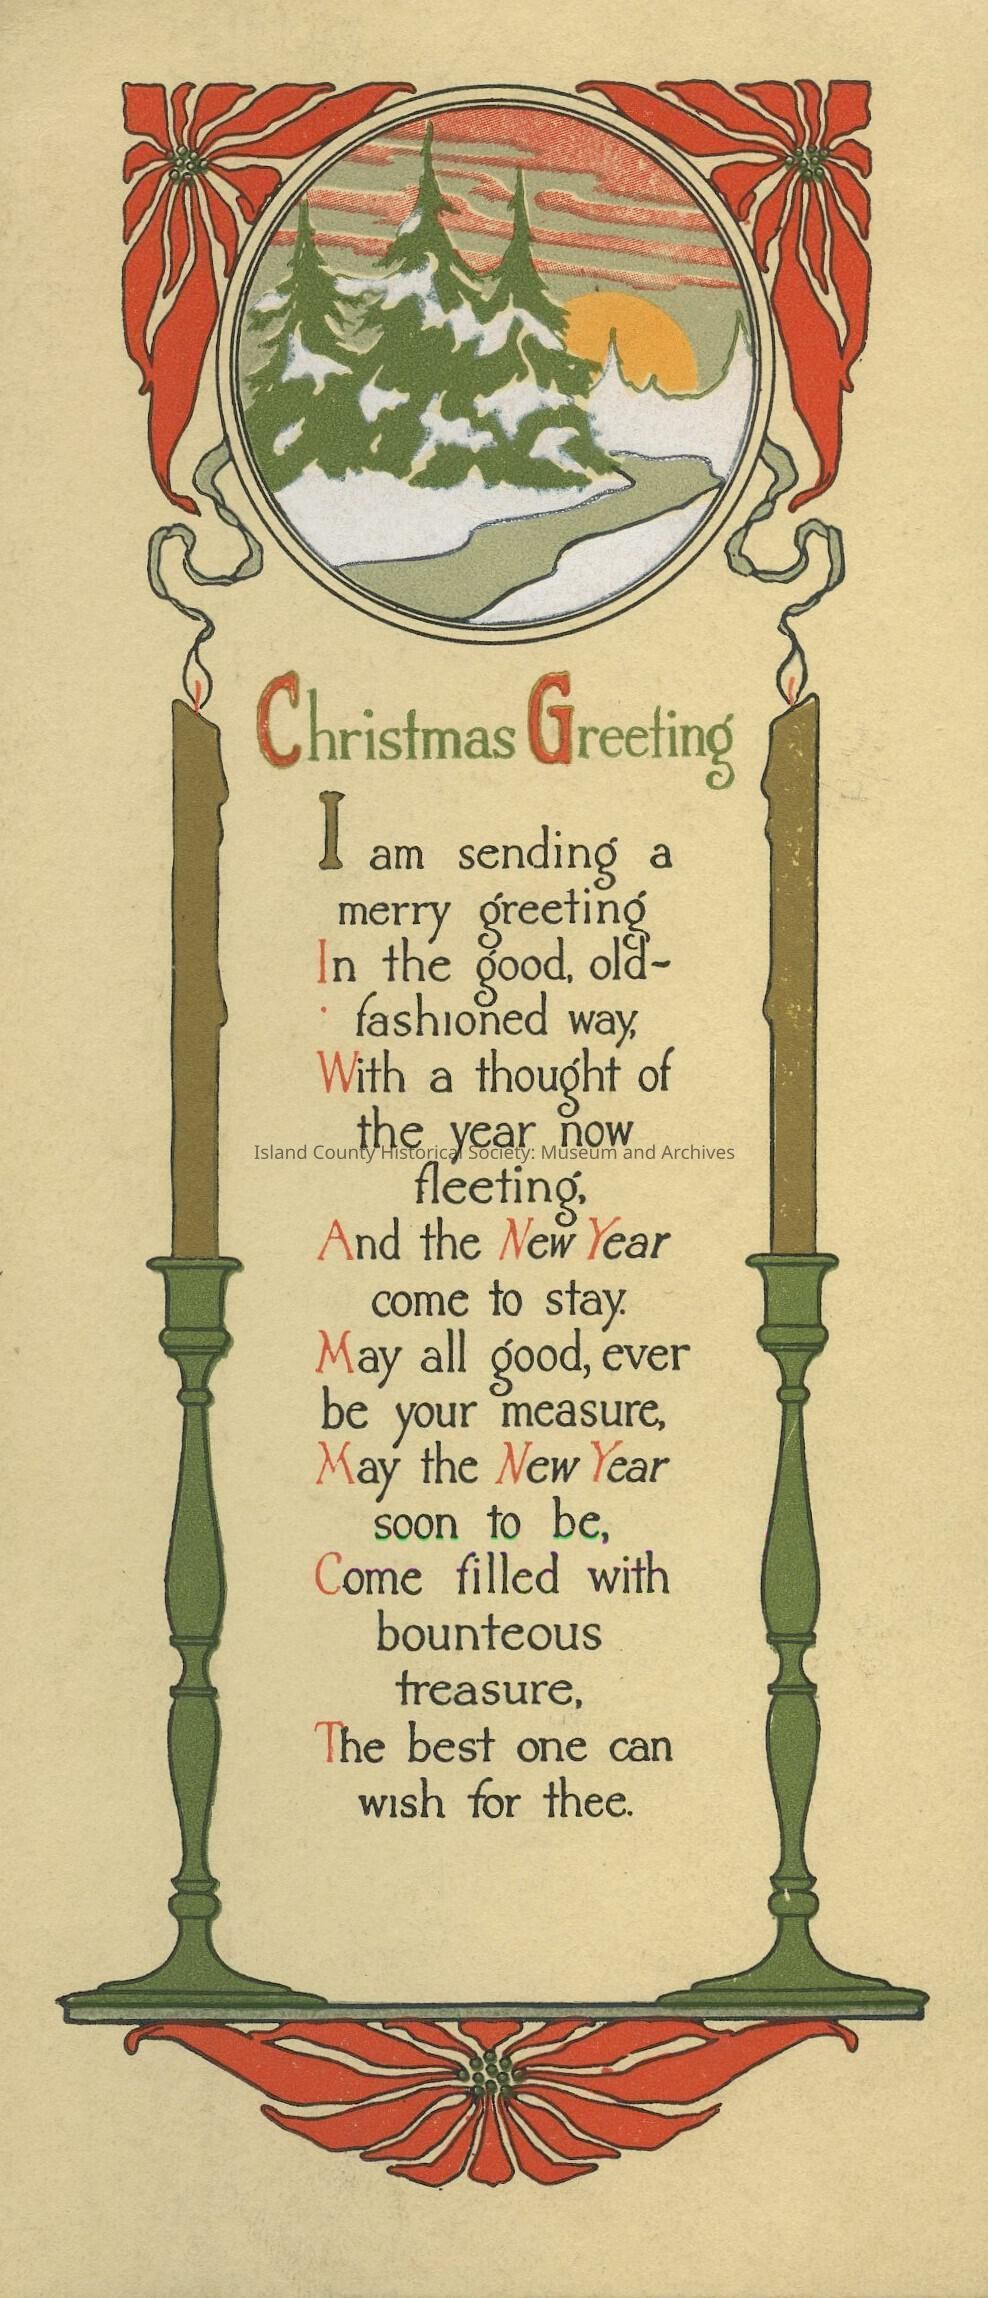 Christmas Greeting
I am sending a
merry greeting
In the good, old-
fashioned way,
With a thought of
the year now
Island County Historical Society: Museum and Archives
fleeting,
And the New Year
come to stay.
May all good, ever
be your measure,
May the New Year
soon to be,
Come filled with
bounteous
treasure,
The best one can
wish for thee.